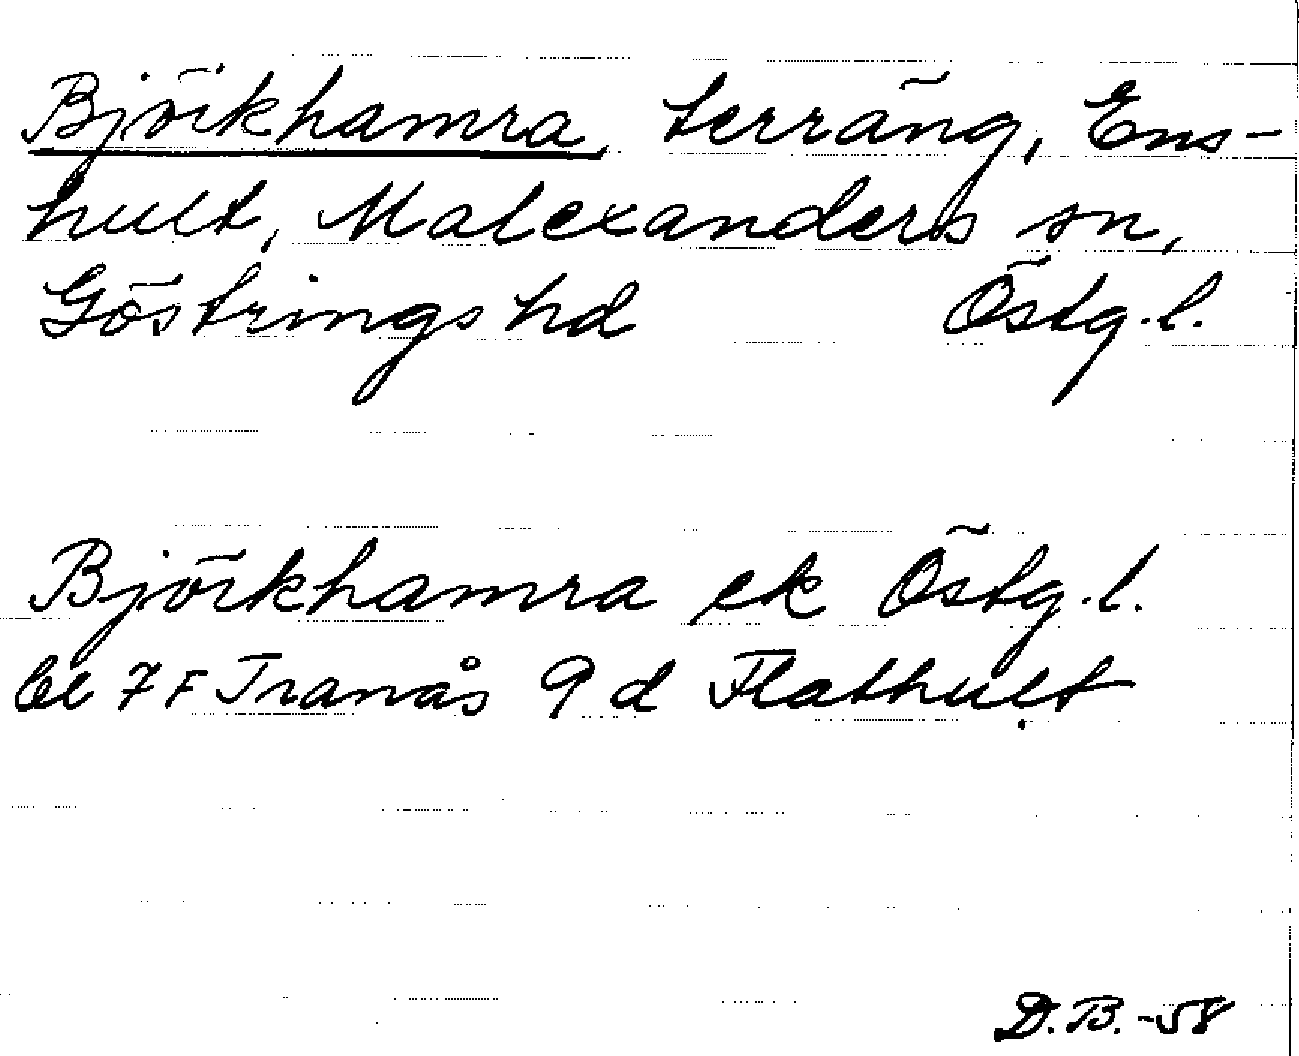 Björkhamra, terräng, Ens-
hult, Malexanders sn,
Göstrings hd Östg.l.
Björkhamra ek Östg.l.
bl 7 F Tranås 9 d Flathult
D.B.-58